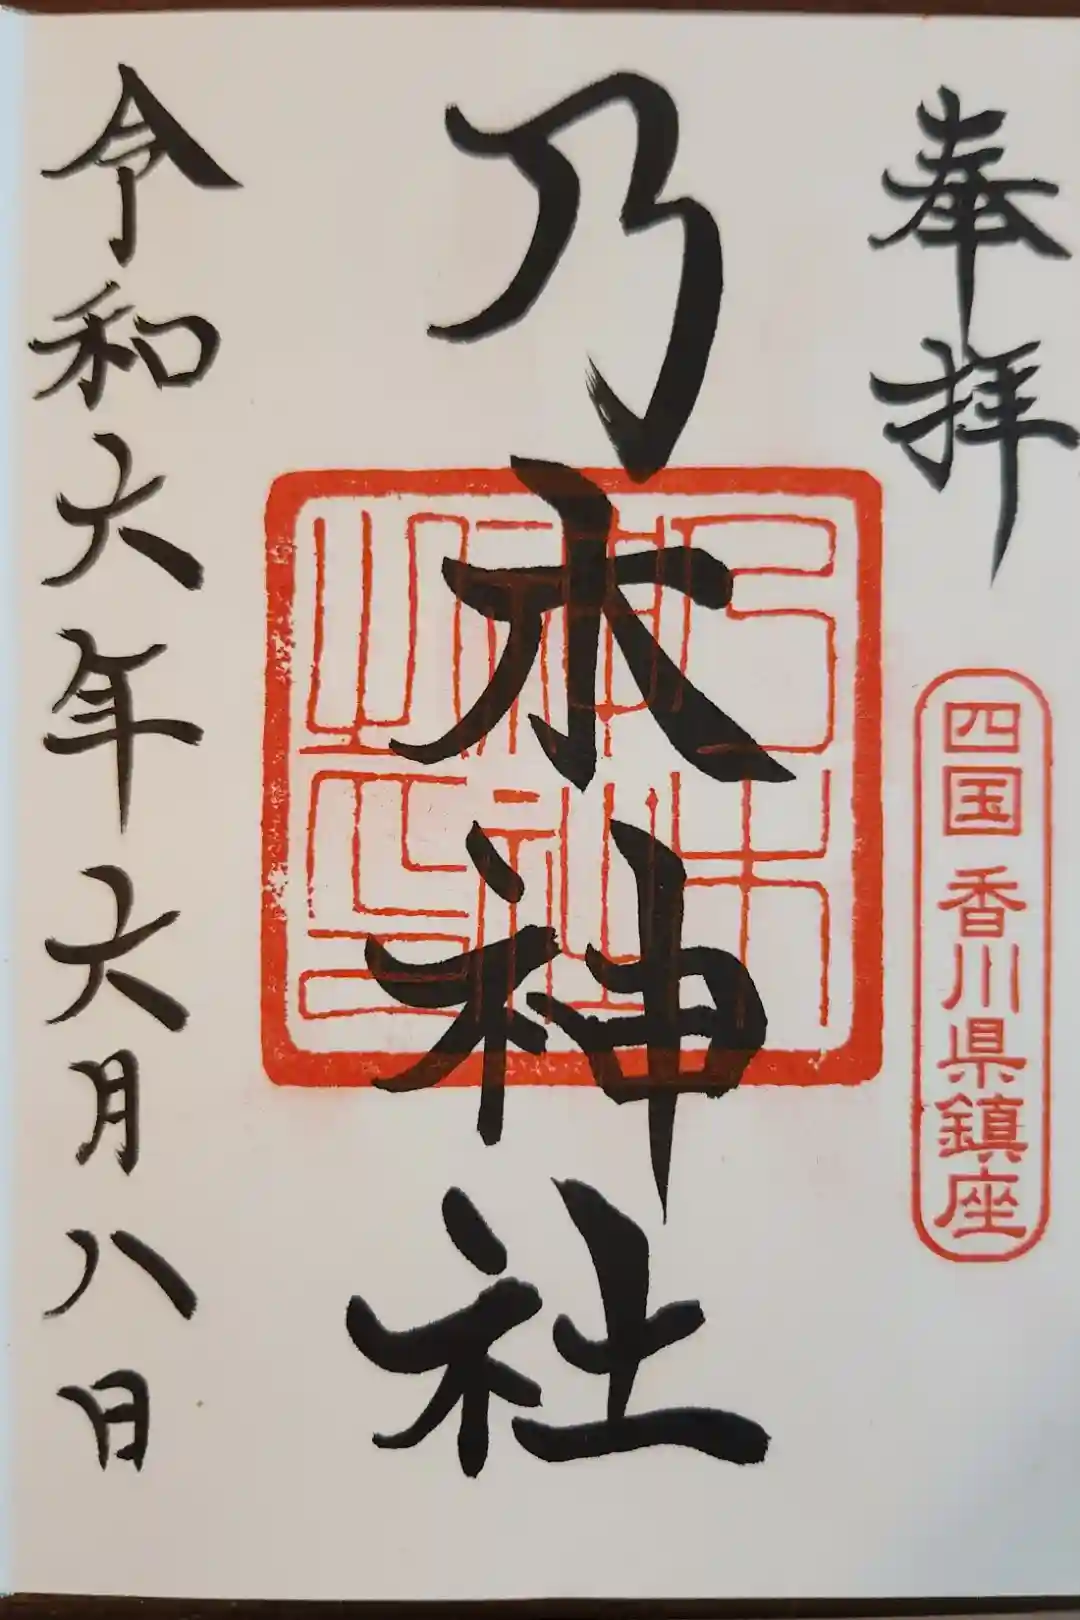 奉拝
四国香川県鎮座
乃木神社
乃木神社之印
令和六年六月八日